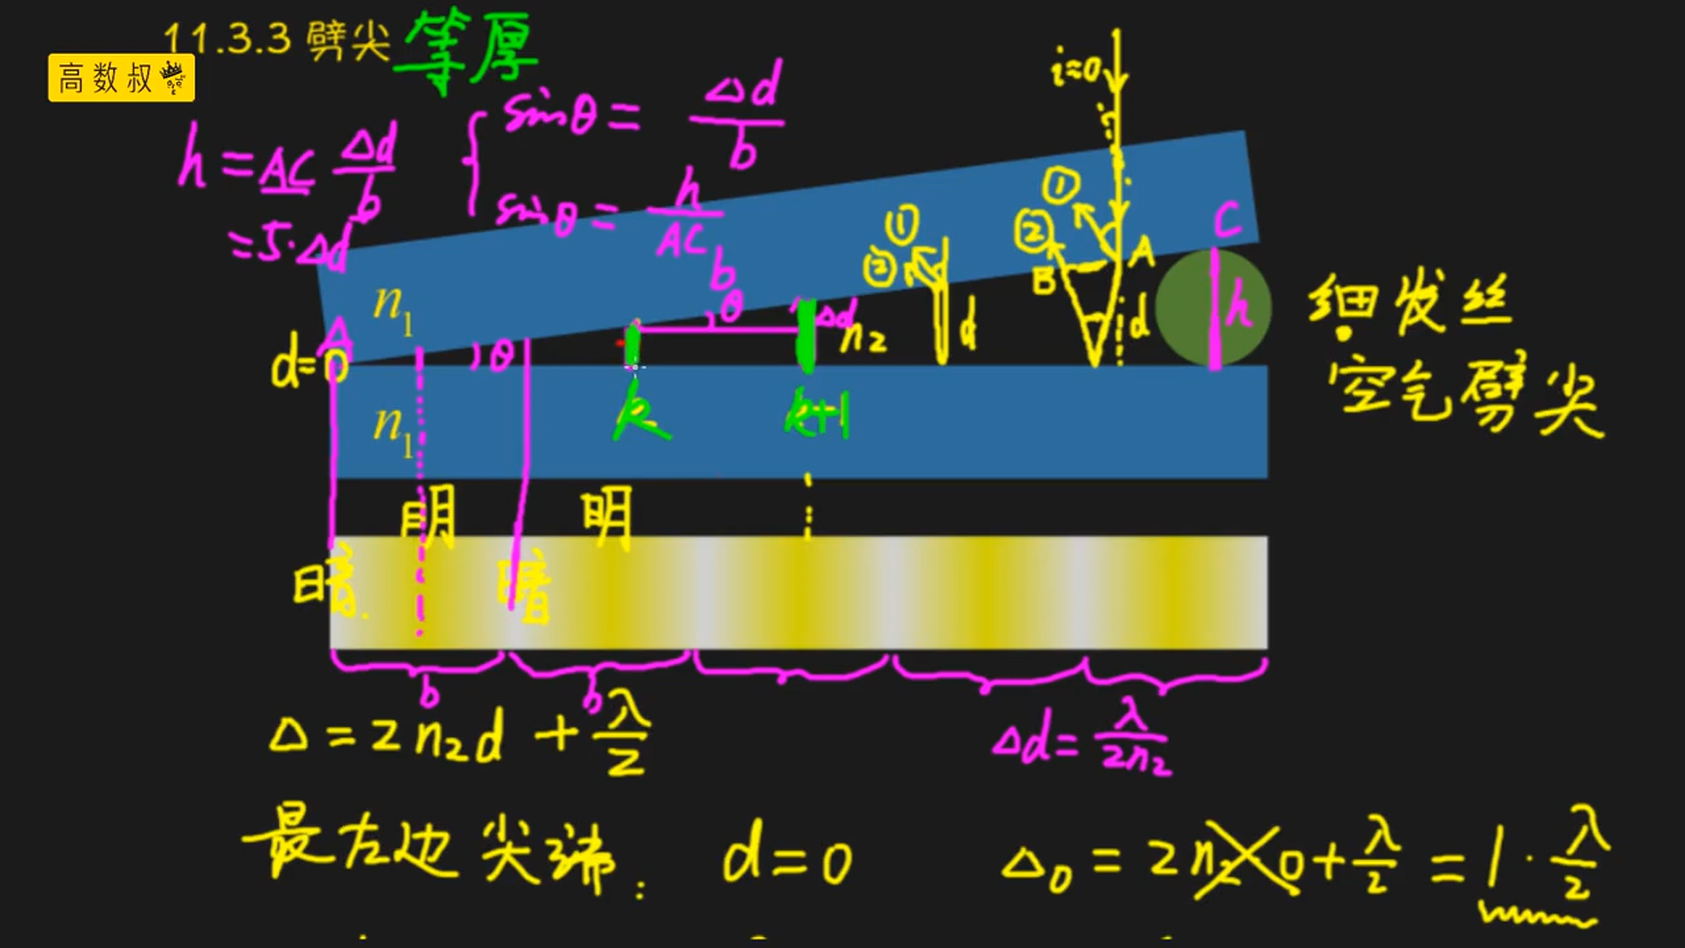 11.3.3 劈尖 等厚
高数叔
h = AC Δd/b
= 5·Δd
sinθ = Δd/b
sinθ = h/AC
i≈0
①
②
A
B
d
C
h
①
②
d
细发丝
空气劈尖
n₁
A
d=0
θ
b
θ
Δd
n₂
n₁
k
k+1
明
明
暗
暗
b
b
Δ = 2n₂d + λ/2
Δd = λ/2n₂
最左边尖端: d=0 Δ₀ = 2n₂·0 + λ/2 = 1·λ/2